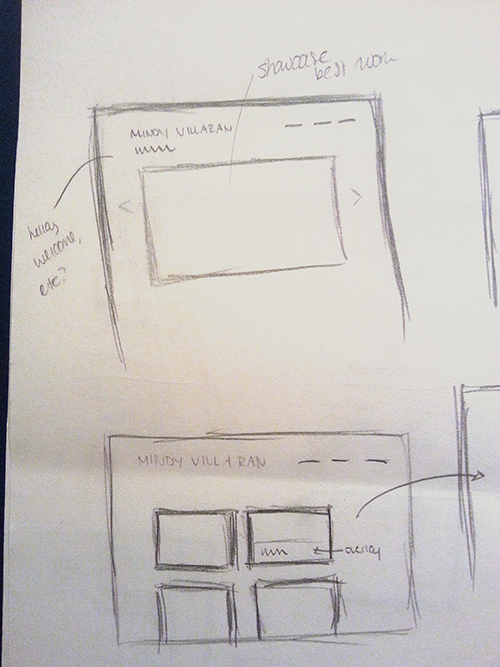 showcase
best work
MINDY VILLARAN
welcome,
etc?
MINDY VILLARAN
overlay